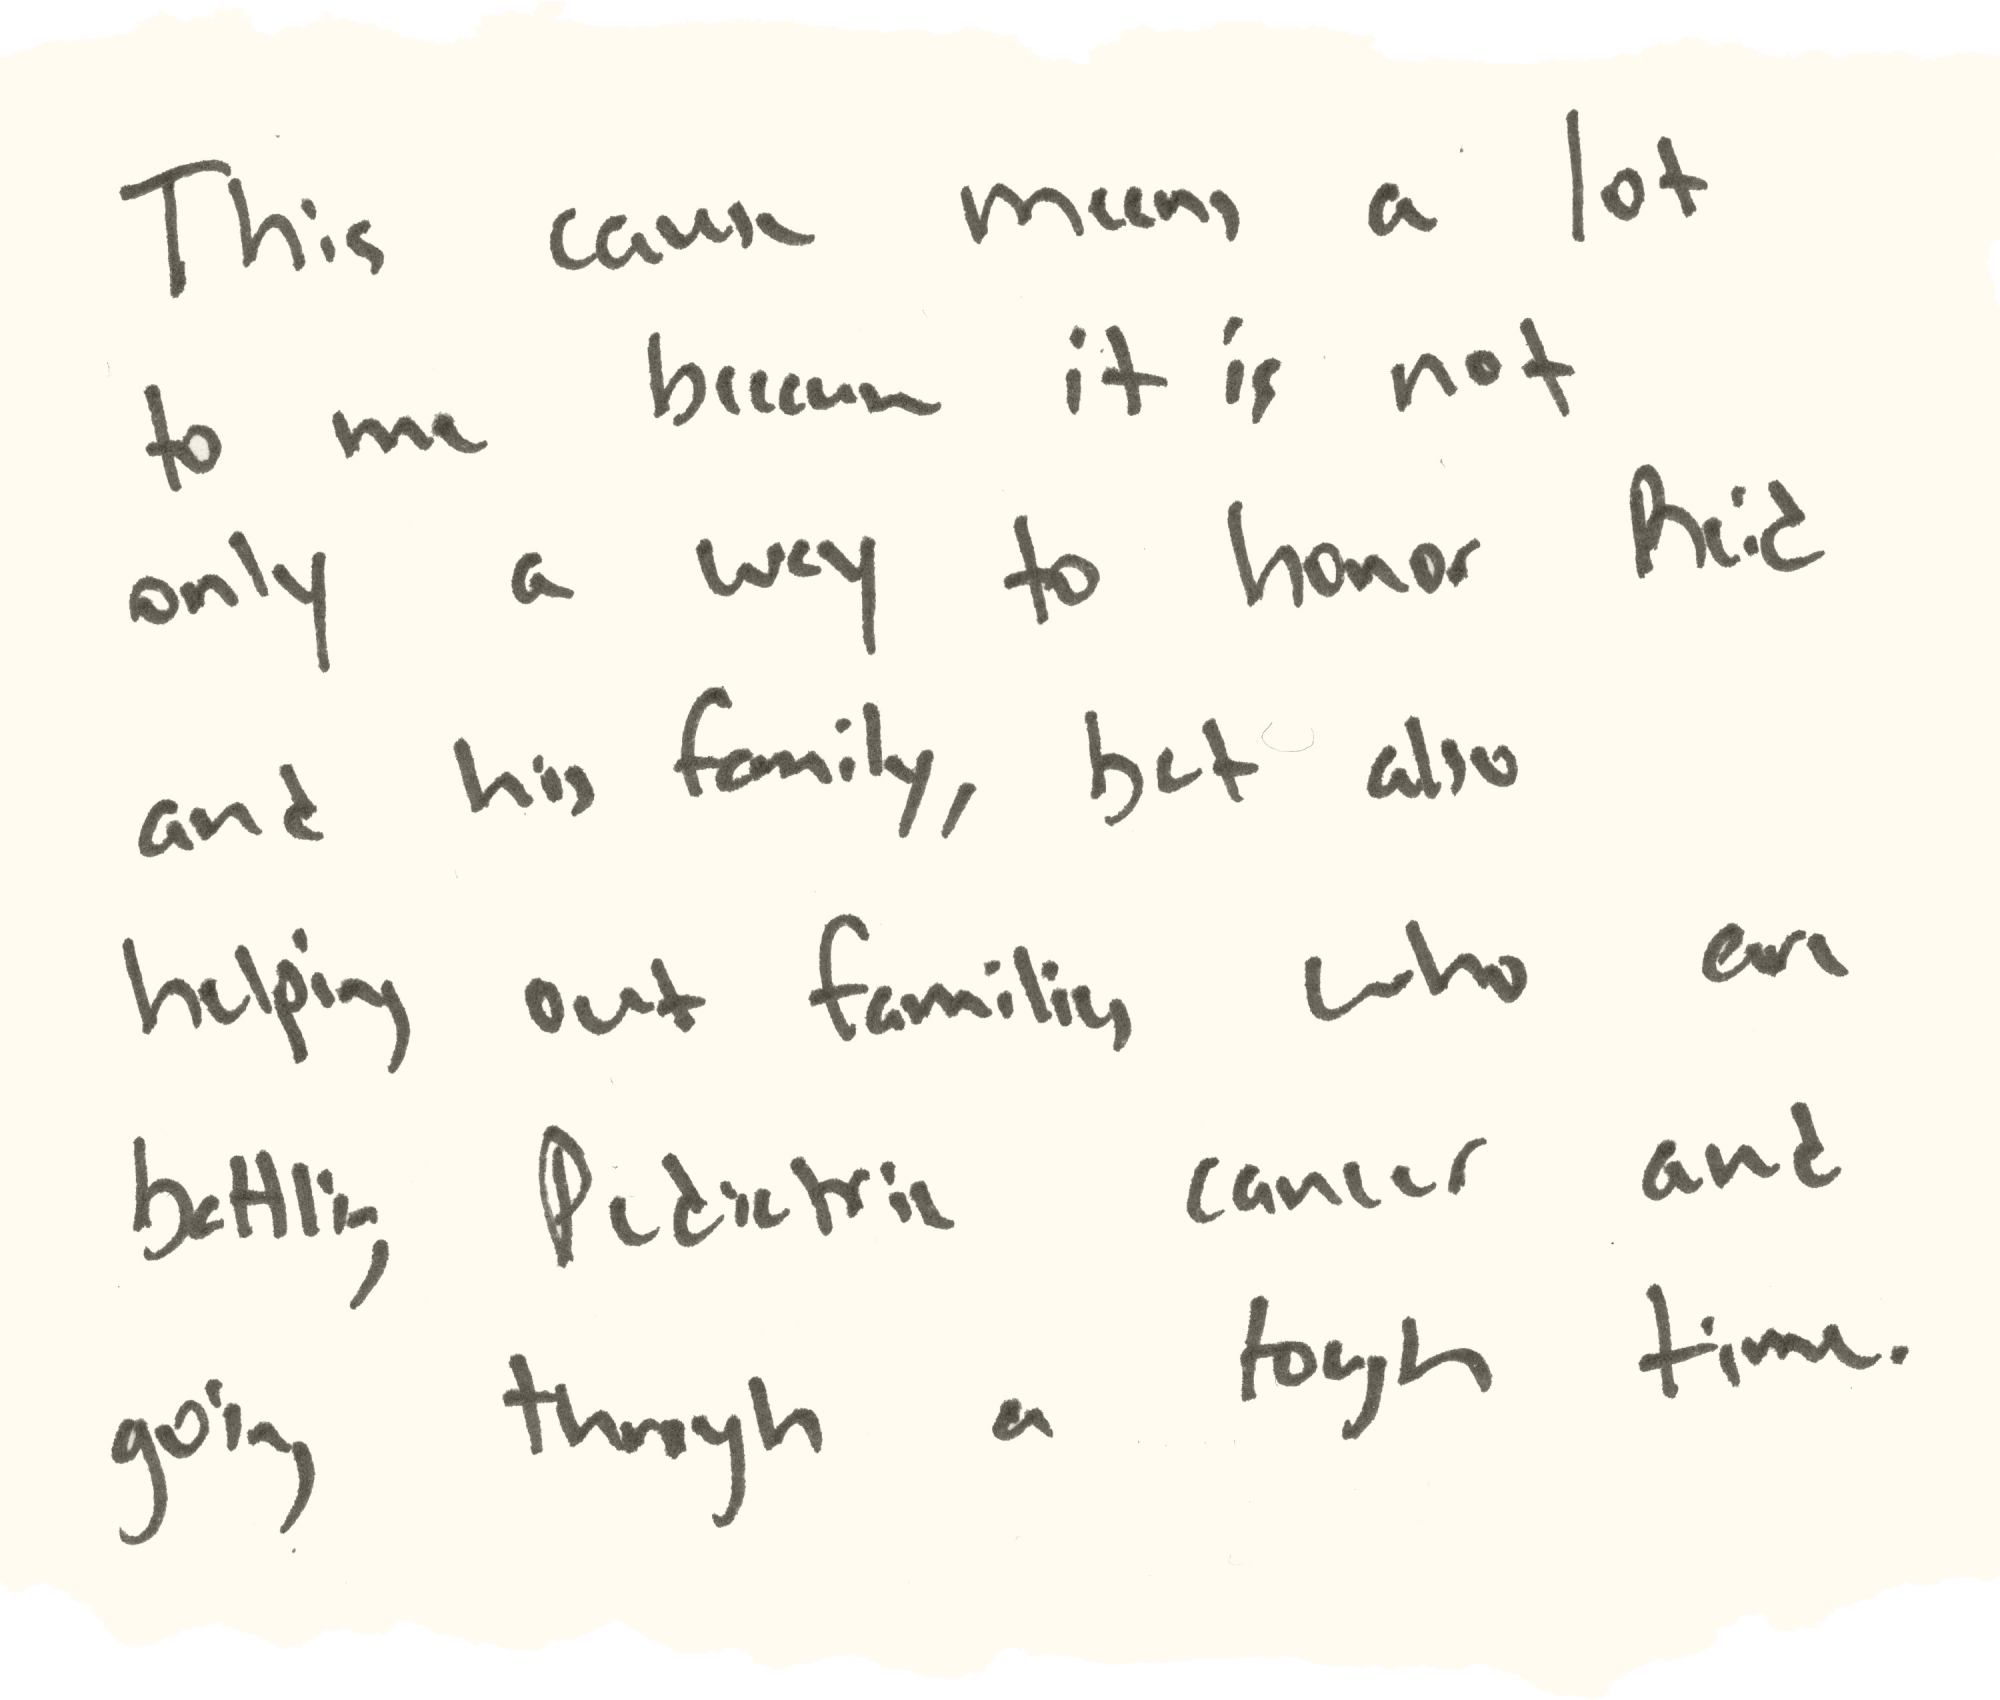 This cause means a lot
to me because it is not
only a way to honor Reid
and his family, but also
helping out families who are
battling Pediatric cancer and
going through a tough time.